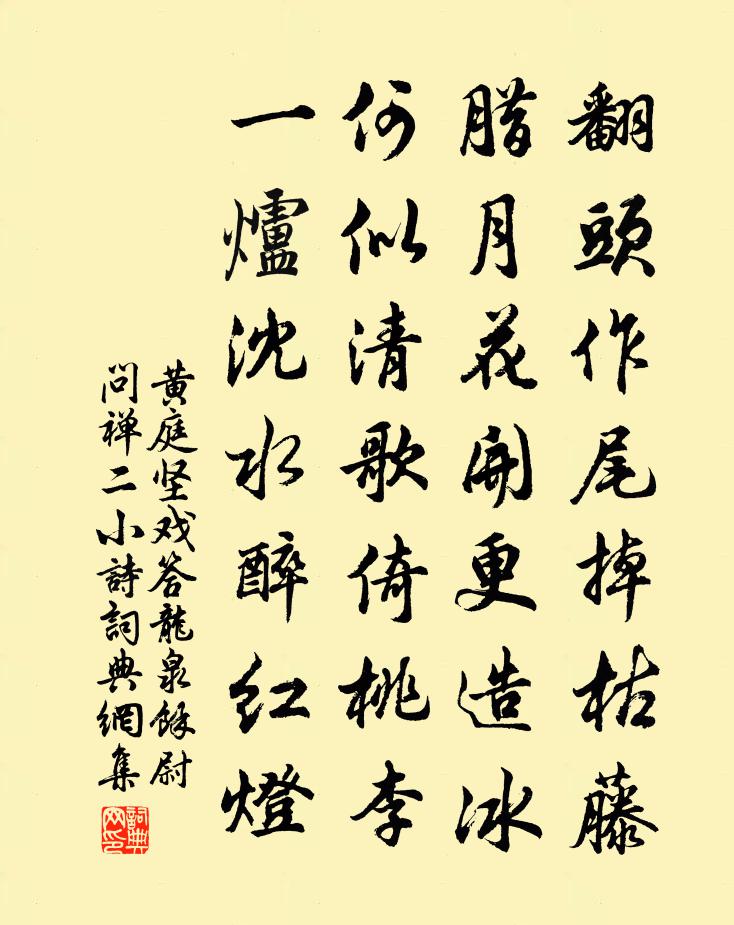 翻頭作尾掉枯藤
腊月花開更造冰
何似清歌倚桃李
一爐沈水醉红燈
黄庭坚戏答龍泉餘尉
问禅二小詩詞典網集
詞典
网印